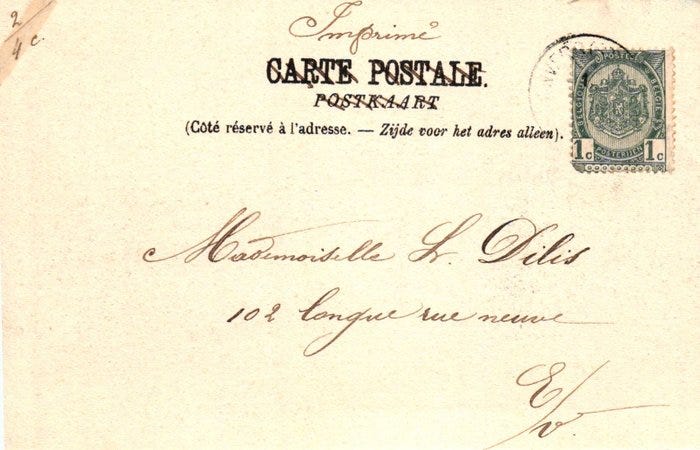 2
4 c.
Imprimé
CARTE POSTALE.
POSTKAART
(Côté réservé à l'adresse. — Zijde voor het adres alleen).
BELGIQUE POSTES BELGIË
POSTERIJEN
1c 1c
Mademoiselle L. Dilis
102 longue rue neuve
E/v.